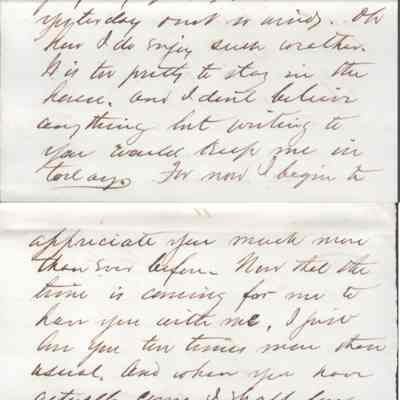 yesterday and no wind. Oh
how I do enjoy such weather.
It is too pretty to stay in the
house. and I dont believe
anything but writing to
you would keep me in
today. For now I begin to
appreciate you much more
than ever before. Now that the
time is coming for me to
have you with me, I
love you ten times more than
usual. And when you have
actually come I shall love